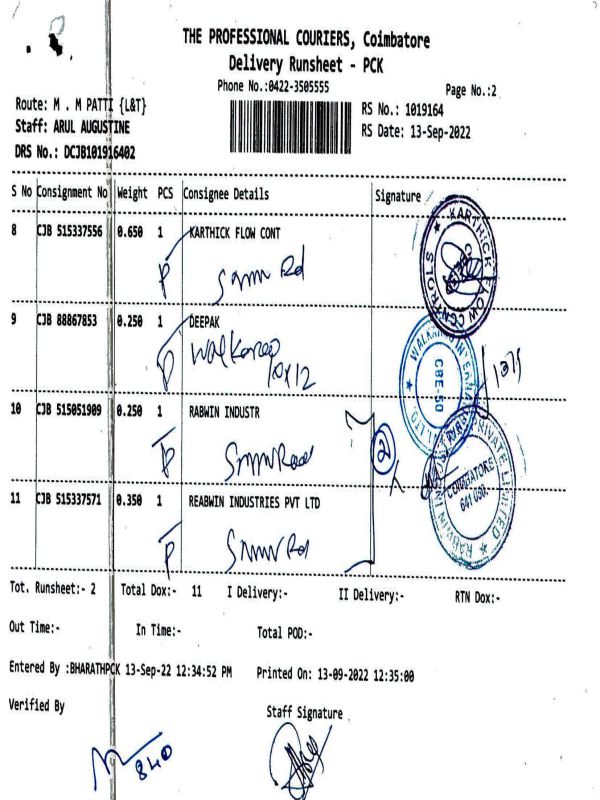 THE PROFESSIONAL COURIERS, Coimbatore
Delivery Runsheet - PCK
Phone No.:0422-3505555
Page No.:2
Route: M . M PATTI {L&T}
RS No.: 1019164
Staff: ARUL AUGUSTINE
RS Date: 13-Sep-2022
DRS No.: DCJB101916402
S No Consignment No Weight PCS Consignee Details Signature
8 CJB 515337556 0.650 1 KARTHICK FLOW CONT
P
KARTHICK FLOW CONTROLS
9 CJB 88867853 0.250 1 DEEPAK
P Walkaroo
10x12
CBE-50
10 CJB 515051909 0.250 1 RABWIN INDUSTR
P
2
COIMBATORE
641 050.
11 CJB 515337571 0.350 1 REABWIN INDUSTRIES PVT LTD
P
Tot. Runsheet:- 2 Total Dox:- 11 I Delivery:- II Delivery:- RTN Dox:-
Out Time:- In Time:- Total POD:-
Entered By :BHARATHPCK 13-Sep-22 12:34:52 PM Printed On: 13-09-2022 12:35:00
Verified By Staff Signature
840